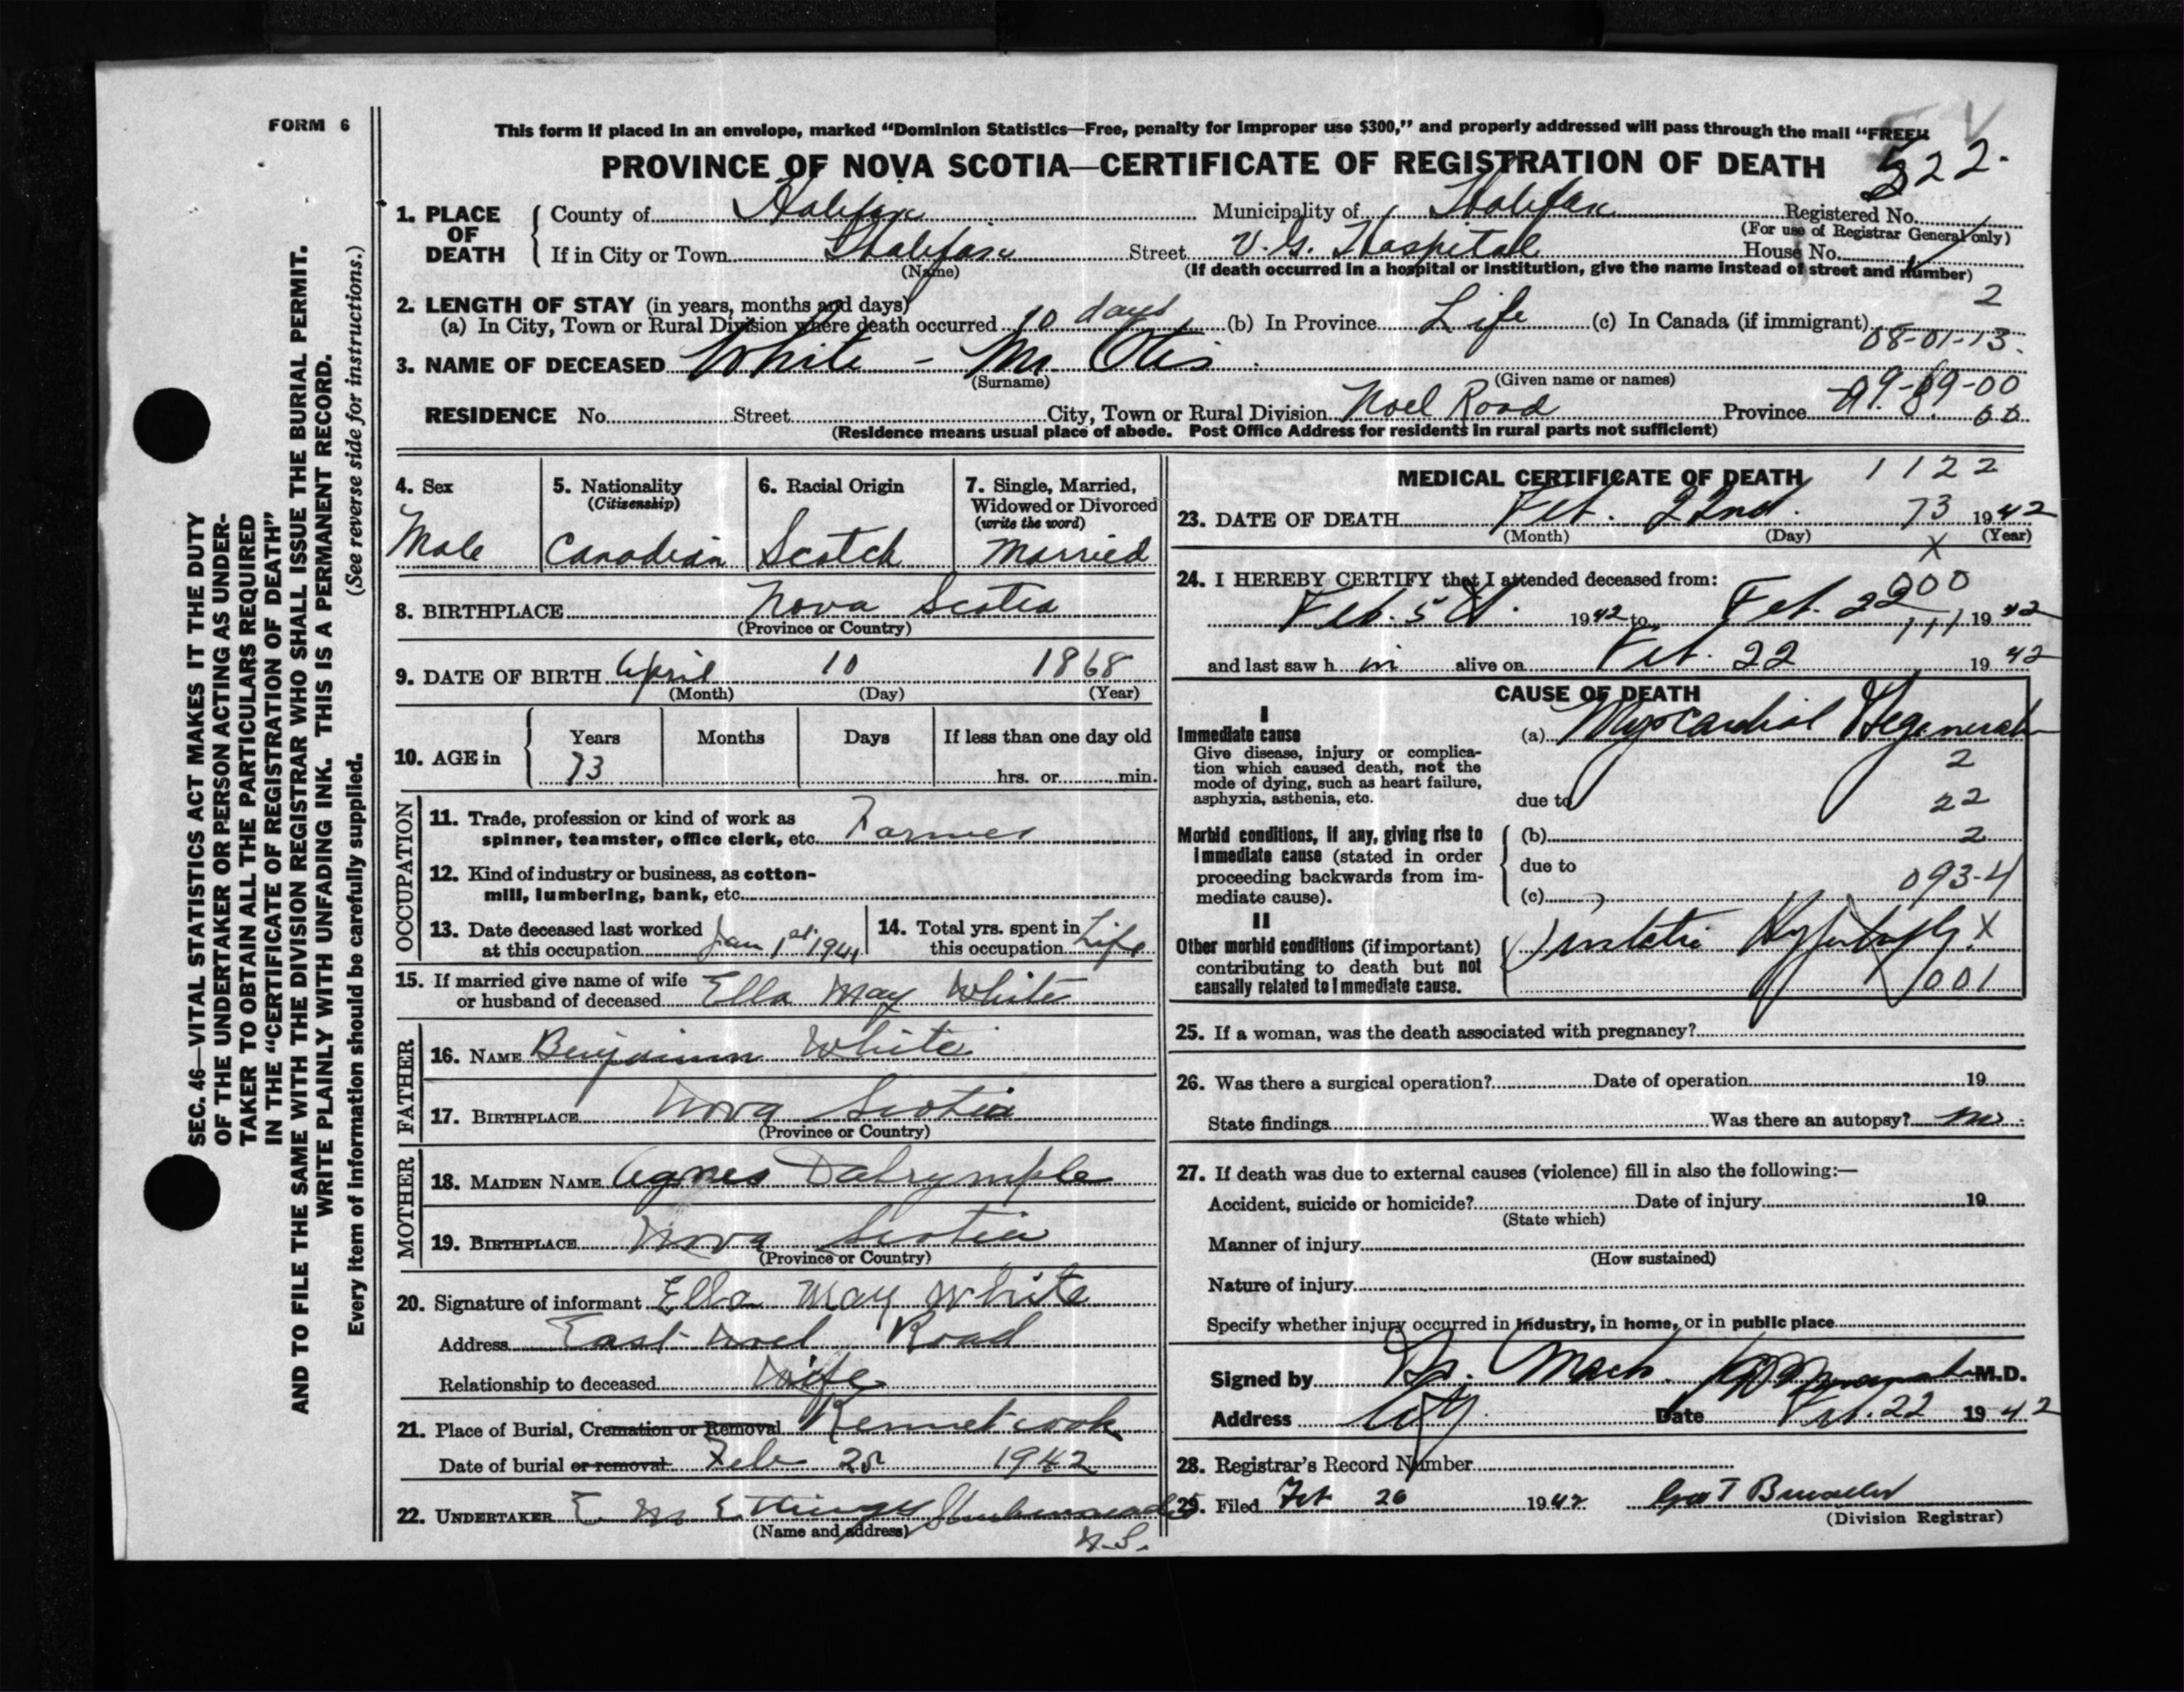 FORM 6
This form if placed in an envelope, marked “Dominion Statistics—Free, penalty for improper use $300,” and properly addressed will pass through the mail “FREE”
PROVINCE OF NOVA SCOTIA—CERTIFICATE OF REGISTRATION OF DEATH
522.
1. PLACE OF DEATH
County of Halifax Municipality of Halifax Registered No.
(For use of Registrar General only)
If in City or Town Halifax Street V.G. Hospital House No.
(Name) (If death occurred in a hospital or institution, give the name instead of street and number)
2. LENGTH OF STAY (in years, months and days) 2
(a) In City, Town or Rural Division where death occurred 10 days (b) In Province Life (c) In Canada (if immigrant)
08-01-13.
3. NAME OF DECEASED White - Mr. Otis
(Surname) (Given name or names)
RESIDENCE No. Street City, Town or Rural Division Noel Road Province
(Residence means usual place of abode. Post Office Address for residents in rural parts not sufficient)
4. Sex
Male
5. Nationality
(Citizenship)
Canadian
6. Racial Origin
Scotch
7. Single, Married,
Widowed or Divorced
(write the word)
Married
8. BIRTHPLACE Nova Scotia
(Province or Country)
9. DATE OF BIRTH April 10 1868
(Month) (Day) (Year)
10. AGE in
Years Months Days If less than one day old
73 hrs. or min.
OCCUPATION
11. Trade, profession or kind of work as
spinner, teamster, office clerk, etc. Farmer
12. Kind of industry or business, as cotton-
mill, lumbering, bank, etc.
13. Date deceased last worked
at this occupation Jan 1st 1941
14. Total yrs. spent in
this occupation Life
15. If married give name of wife
or husband of deceased Ella May White
FATHER
16. NAME Benjamin White
17. BIRTHPLACE Nova Scotia
(Province or Country)
MOTHER
18. MAIDEN NAME Agnes Dalrymple
19. BIRTHPLACE Nova Scotia
(Province or Country)
20. Signature of informant Ella May White
Address East Noel Road
Relationship to deceased Wife
21. Place of Burial, Cremation or Removal Kennetcook
Date of burial or removal Feb 25 1942
22. UNDERTAKER E M Ettinger
(Name and address)
N.S.
MEDICAL CERTIFICATE OF DEATH 1122
23. DATE OF DEATH Feb. 22nd. 73 1942
(Month) (Day) (Year)
X
24. I HEREBY CERTIFY that I attended deceased from:
000
Feb. 5 1942 to Feb. 22 1942
111
and last saw h im alive on Feb. 22 1942
CAUSE OF DEATH
I
Immediate cause
Give disease, injury or complica-
tion which caused death, not the
mode of dying, such as heart failure,
asphyxia, asthenia, etc.
(a) Myocardial Degeneration
2
due to
22
Morbid conditions, if any, giving rise to
immediate cause (stated in order
proceeding backwards from im-
mediate cause).
(b) 2
due to
093-4
(c)
II
Other morbid conditions (if important)
contributing to death but not
causally related to immediate cause.
Prostatic Hypertrophy. X
001
25. If a woman, was the death associated with pregnancy?
26. Was there a surgical operation? Date of operation 19
State findings Was there an autopsy? no
27. If death was due to external causes (violence) fill in also the following:—
Accident, suicide or homicide? Date of injury 19
(State which)
Manner of injury
(How sustained)
Nature of injury
Specify whether injury occurred in industry, in home, or in public place
Signed by M.D.
Address City Date Feb. 22 1942
28. Registrar's Record Number
29. Filed Feb 26 1942
(Division Registrar)
SEC. 46—VITAL STATISTICS ACT MAKES IT THE DUTY
OF THE UNDERTAKER OR PERSON ACTING AS UNDER-
TAKER TO OBTAIN ALL THE PARTICULARS REQUIRED
IN THE “CERTIFICATE OF REGISTRATION OF DEATH”
AND TO FILE THE SAME WITH THE DIVISION REGISTRAR WHO SHALL ISSUE THE BURIAL PERMIT.
WRITE PLAINLY WITH UNFADING INK. THIS IS A PERMANENT RECORD.
Every item of information should be carefully supplied. (See reverse side for instructions.)